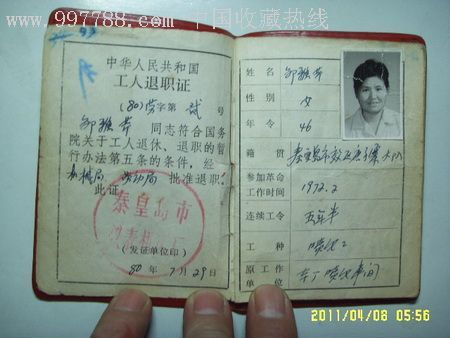 www.997788.com 中国收藏热线
93
中华人民共和国
工人退职证
(80)劳字第 试 号
邹雅芳 同志符合国务
院关于工人退休、退职的暂
行办法第五条的条件,经
劳动局 批准退职。
此证
秦皇岛市
(发证单位印)
80年7月29日
姓名 邹雅芳
性别 女
年令 46
籍贯 秦皇岛市
参加革命
工作时间 1972.2
连续工令 五年半
工种 喷化工
原工作
单位 车间
2011/04/08 05:56